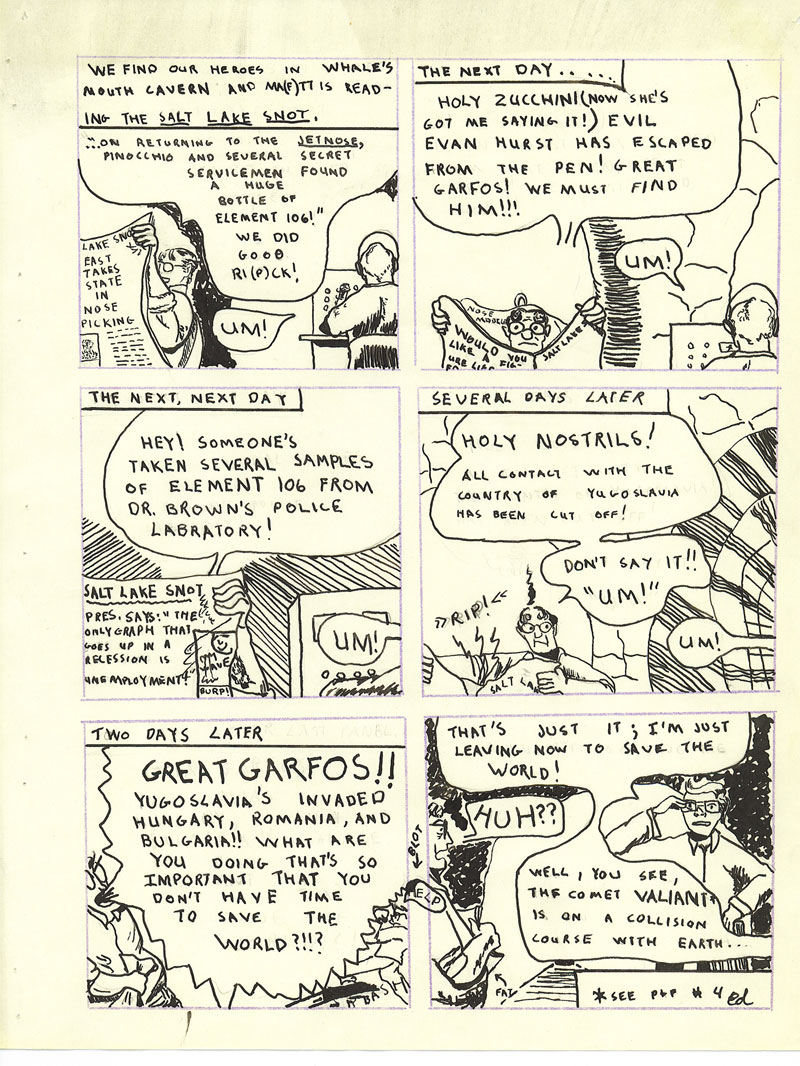 WE FIND OUR HEROES IN WHALE'S
MOUTH CAVERN AND MN(F)TT IS READ-
ING THE SALT LAKE SNOT.
"..ON RETURNING TO THE JETNOSE,
PINOCCHIO AND SEVERAL SECRET
SERVICEMEN FOUND
A HUGE
BOTTLE OF
ELEMENT 106!"
WE DID
GOOD
RI(P)CK!
LAKE SNO
EAST
TAKES
STATE
IN
NOSE
PICKING
UM!
THE NEXT DAY......
HOLY ZUCCHINI (NOW SHE'S
GOT ME SAYING IT!) EVIL
EVAN HURST HAS ESCAPED
FROM THE PEN! GREAT
GARFOS! WE MUST FIND
HIM!!!
UM!
NOSE
WOULD YOU
LIKE A FIG-
URE LIKE
SALT LAKE
THE NEXT, NEXT DAY
HEY! SOMEONE'S
TAKEN SEVERAL SAMPLES
OF ELEMENT 106 FROM
DR. BROWN'S POLICE
LABRATORY!
SALT LAKE SNOT
PRES. SAYS: "THE
ONLY GRAPH THAT
GOES UP IN A
RECESSION IS
UNEMPLOYMENT!"
BURP!
UM!
SEVERAL DAYS LATER
HOLY NOSTRILS!
ALL CONTACT WITH THE
COUNTRY OF YUGOSLAVIA
HAS BEEN CUT OFF!
DON'T SAY IT!!
"UM!"
RIP!
UM!
SALT LAK
TWO DAYS LATER
GREAT GARFOS!!
YUGOSLAVIA'S INVADED
HUNGARY, ROMANIA, AND
BULGARIA!! WHAT ARE
YOU DOING THAT'S SO
IMPORTANT THAT YOU
DON'T HAVE TIME
TO SAVE THE
WORLD?!!?
BASH
THAT'S JUST IT; I'M JUST
LEAVING NOW TO SAVE THE
WORLD!
HUH??
BLOT
HELP
WELL, YOU SEE,
THE COMET VALIANT*
IS ON A COLLISION
COURSE WITH EARTH...
FAT
*SEE P+P #4 ed